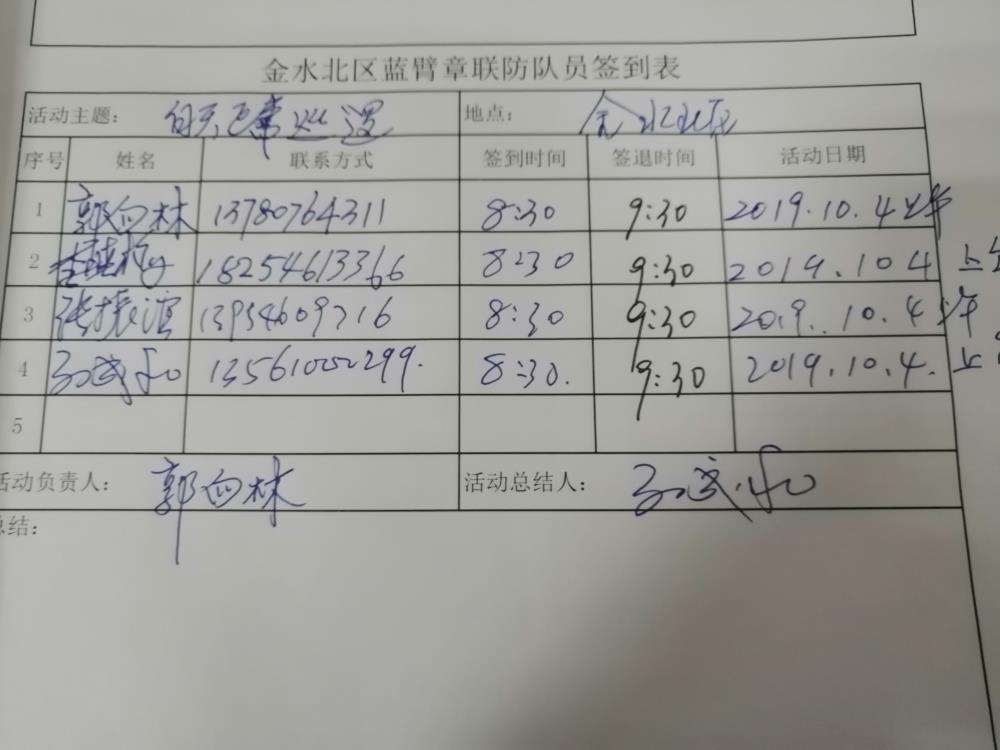 金水北区蓝臂章联防队员签到表
活动主题： 白天正常巡逻 地点： 金水北区
序号 姓名 联系方式 签到时间 签退时间 活动日期
1 郭向林 13780764311 8:30 9:30 2019.10.4 上午
2 18254613366 8:30 9:30 2019.10 4 上午
3 张振滨 13954609716 8:30 9:30 2019.10.4 上午
4 13561000299. 8:30. 9:30 2019.10.4. 上
5
活动负责人： 郭向林 活动总结人：
总结：